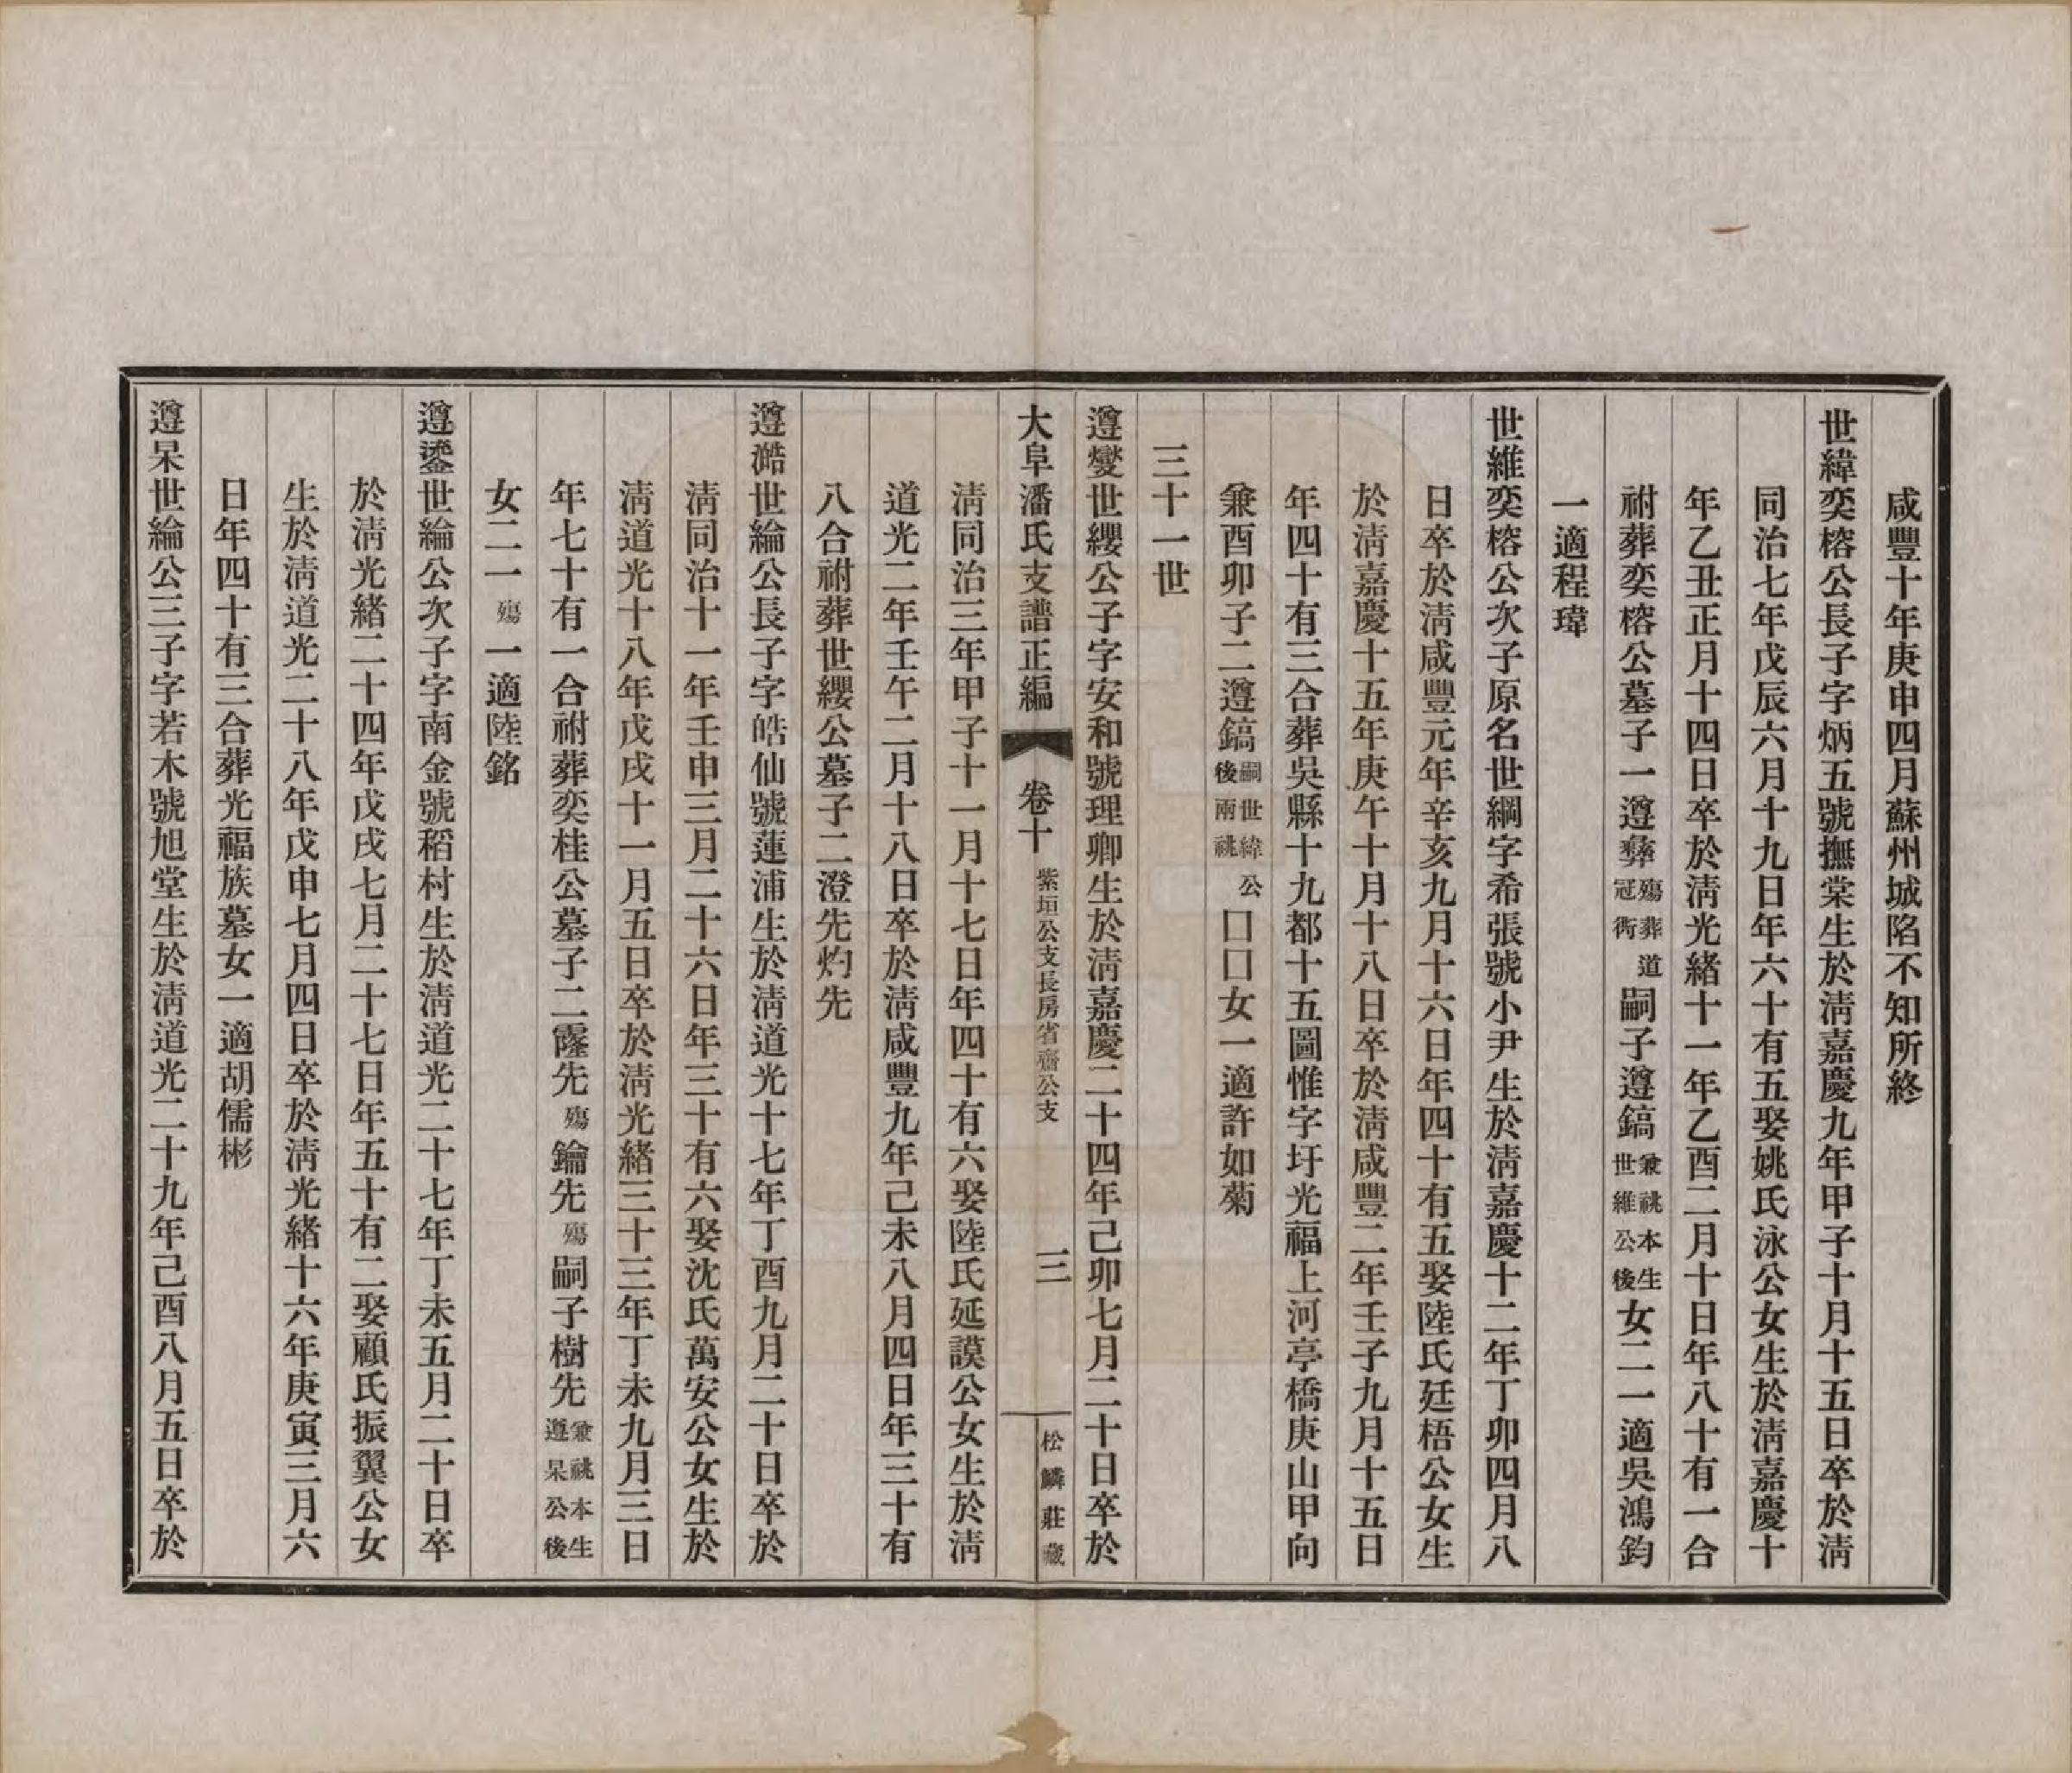 咸豐十年庚申四月蘇州城陷不知所終
世緯奕榕公長子字炳五號撫棠生於淸嘉慶九年甲子十月十五日卒於淸
同治七年戊辰六月十九日年六十有五娶姚氏泳公女生於淸嘉慶十
年乙丑正月十四日卒於淸光緖十一年乙酉二月十日年八十有一合
祔葬奕榕公墓子一遵彝殤葬道冠衖嗣子遵鎬兼祧本生世維公後女二一適吳鴻鈞
一適程瑋
世維奕榕公次子原名世綱字希張號小尹生於淸嘉慶十二年丁卯四月八
日卒於淸咸豐元年辛亥九月十六日年四十有五娶陸氏廷梧公女生
於淸嘉慶十五年庚午十月十八日卒於淸咸豐二年壬子九月十五日
年四十有三合葬吳縣十九都十五圖惟字圩光福上河亭橋庚山甲向
兼酉卯子二遵鎬嗣世緯公後兩祧囗囗女一適許如菊
三十一世
遵燮世纓公子字安和號理卿生於淸嘉慶二十四年己卯七月二十日卒於
大阜潘氏支譜正編 卷十 紫垣公支長房省齋公支 三 松鱗莊藏
淸同治三年甲子十一月十七日年四十有六娶陸氏延謨公女生於淸
道光二年壬午二月十八日卒於淸咸豐九年己未八月四日年三十有
八合祔葬世纓公墓子二澄先灼先
遵澔世綸公長子字皓仙號蓮浦生於淸道光十七年丁酉九月二十日卒於
淸同治十一年壬申三月二十六日年三十有六娶沈氏萬安公女生於
淸道光十八年戊戌十一月五日卒於淸光緖三十三年丁未九月三日
年七十有一合祔葬奕桂公墓子二先殤鑰先殤嗣子樹先兼祧本生遵杲公後
女二一殤一適陸銘
遵鎏世綸公次子字南金號稻村生於淸道光二十七年丁未五月二十日卒
於淸光緖二十四年戊戌七月二十七日年五十有二娶顧氏振翼公女
生於淸道光二十八年戊申七月四日卒於淸光緖十六年庚寅三月六
日年四十有三合葬光福族墓女一適胡儒彬
遵杲世綸公三子字若木號旭堂生於淸道光二十九年己酉八月五日卒於